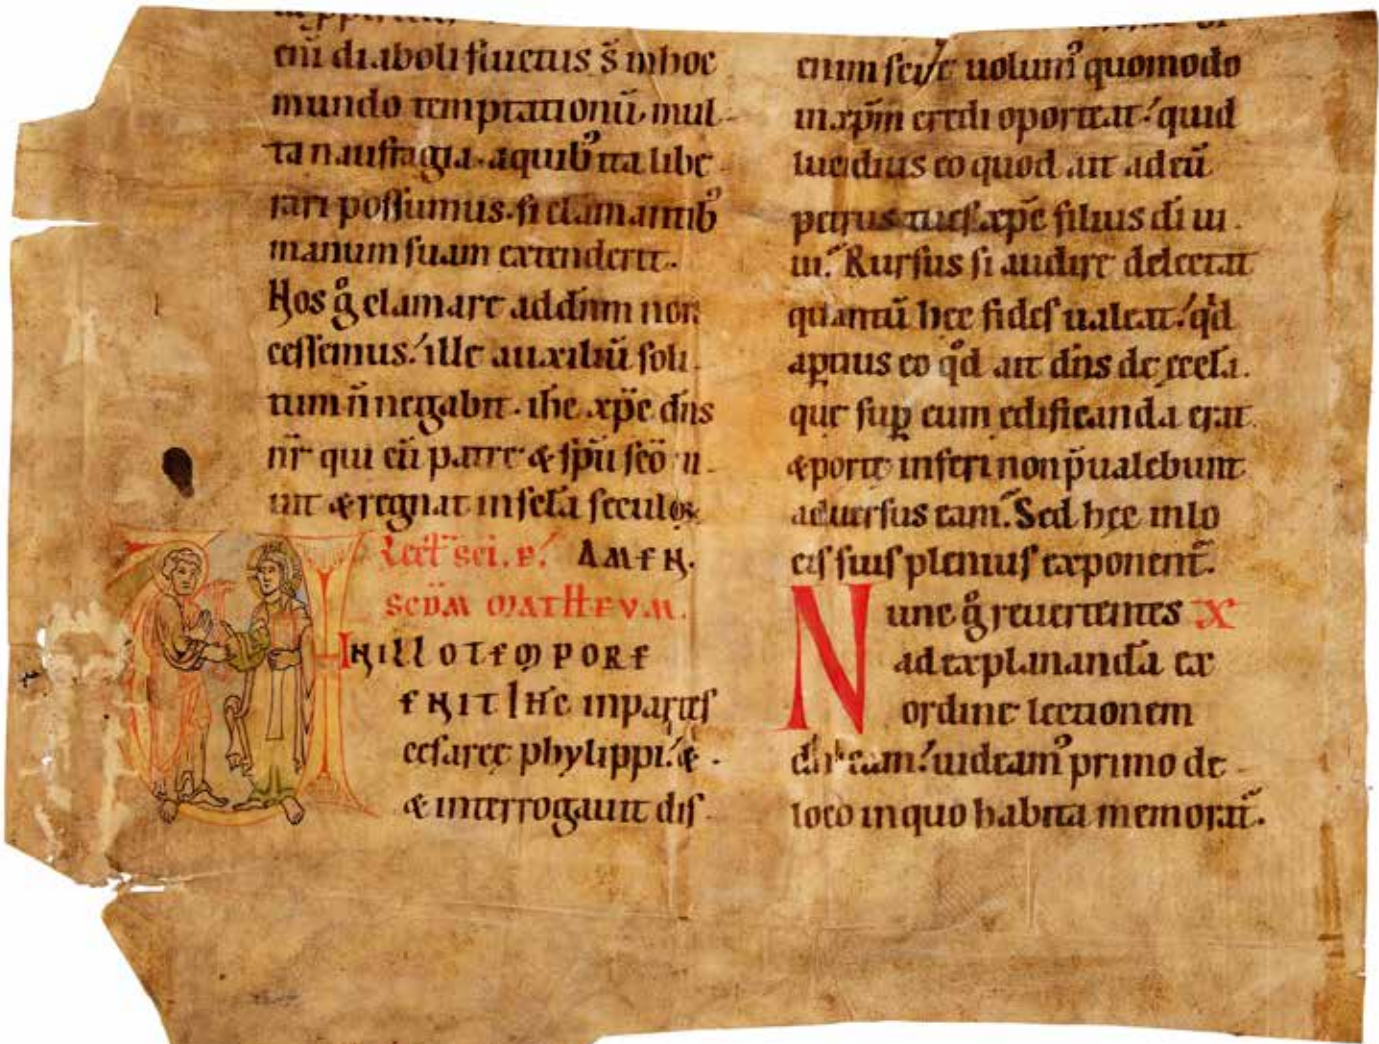 eni diaboli fluctus s̄ inhoc
mundo temptationū. mul-
ta naufragia. aquibꝰ ita libe-
rari possumus. si clamantibꝰ
manum suam extenderit.
Hos g̊ clamare addn̄m non
cessemus. ille auxiliū soli-
tum n̄ negabit. ihc xp̄c dn̄s
nr̄ qui cū patre & sp̄u sc̄o ui-
uit & regnat insc̄la seculoꝝ
Lect̄ sc̄i. e. AMEN.
SCD̄M MATHEVM.
IN ILLO TEMPORE
ENIT IHC inpartes
cesareę phylippi. & -
& interrogauit dis-
enim scire uolumꝰ quomodo
inxp̄m credi oporteat. quid
lucidius eo quod ait adeū
petrus tu es xp̄c filius dī ui-
ui. Rursus si audire delectat
quantū hec fides ualeat. qd̄
aptius eo qd̄ ait dn̄s de ęccła.
que sup̱ eum edificanda erat
& porte inferi non p̄ualebunt
aduersus eam. Sed hęc inlo
cis suis plenius exponent̄.
Nunc g̊ reuertentes
ad explananda ex
ordine lectionem
euḡlicam. uideamꝰ primo de -
loco inquo habita memorat̄.